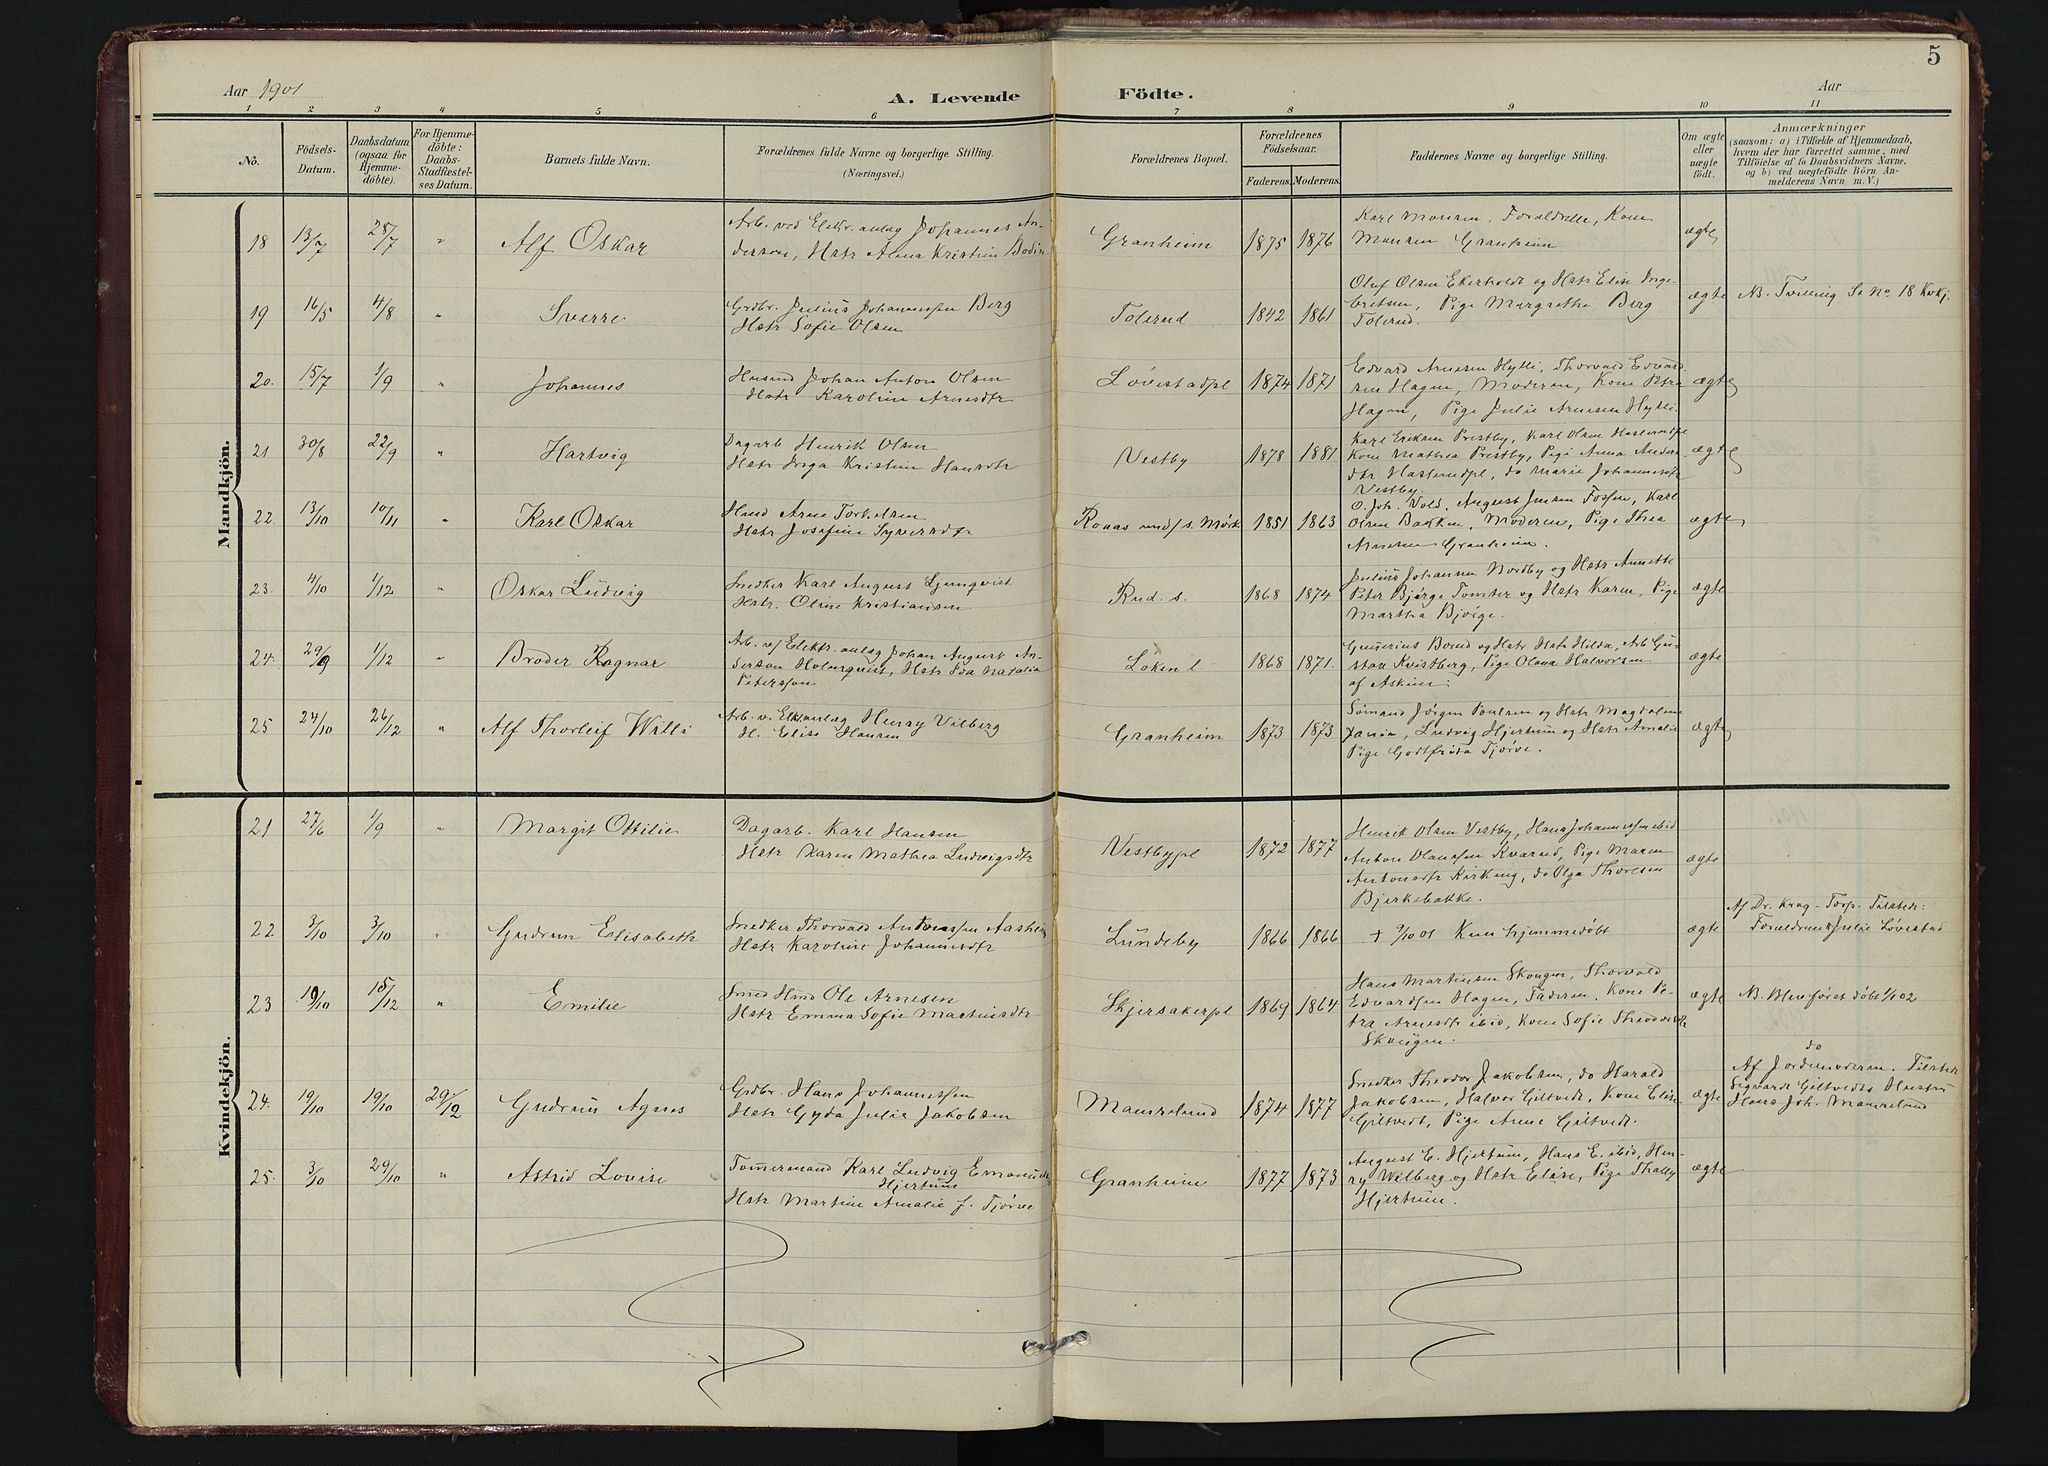 5
Aar 1901
A. Levende Födte.
Aar
1 2 3 4 5 6 7 8 9 10 11
No.
Födsels-
Datum.
Daabsdatum
(ogsaa for
Hjemme-
döbte).
For Hjemme-
döbte:
Daabs-
Stadfæstel-
ses Datum.
Barnets fulde Navn.
Forældrenes fulde Navne og borgerlige Stilling.
(Næringsvei.)
Forældrenes Bopæl.
Forældrenes
Födselsaar.
Faderens.
Moderens.
Faddernes Navne og borgerlige Stilling.
Om ægte
eller
uægte
födt.
Anmærkninger
(saasom: a) i Tilfælde af Hjemmedaab,
hvem der har forrettet samme, med
Tilföielse af to Daabsvidners Navne.
og b) ved uægtefödte Börn An-
melderens Navn m. V.)
Mandkjön.
18 13/7 28/7 " Alf Oskar
Arb. ved Elektr. anlæg Johannes An-
derson, Hstr Alma Kristin Bodin
Granheim 1875 1876
Karl Monsen, Forældrene, Kone
Monsen Granheim
ægte
19 16/5 4/8 " Sverre
Grdbr. Julius Johannessen Berg
Hstr Sofie Olsen
Tolerud 1842 1861
Oluf Olsen Ekerholdt og Hstr Elise Inge-
bretsen, Pige Margrethe Berg
Tolerud.
ægte
NB. Tvilling Se No 18 Kvkj.
20. 15/7 1/9 " Johannes
Husmd Johan Anton Olsen
Hstr Karoline Arnesdtr
Løvestadpl 1874 1871
Edvard Arnesen Hylli, Thorvald Edvard-
sen Hagen, Moderen, Kone Petra
Hagen, Pige Julie Arnesen Hylli.
ægte
21 30/8 22/9 " Hartvig
Dagarb Henrik Olsen
Hstr Inga Kristine Hansdtr
Vestby 1878 1881
Karl Eriksen Prestby, Karl Olsen
Kone Mathea Prestby, Pige Anna Anders-
dtr do Marie Johannesdtr
Vestby.
ægte
22 13/10 10/11 " Karl Oskar
Hmd Arne Torkelsen
Hstr Josefine Syversdtr
Roaas und/s. Mørk 1851 1863
O. Joh. Vold, August Jensen Fossen, Karl
Olsen Bakken, Moderen, Pige Thea
Arnesen Granheim.
ægte
23. 4/10 1/12 " Oskar Ludvig
Snedker Karl August Ljungqvist
Hstr. Oline Kristiansen
Rud. s. 1868 1874
Julius Johannsen Nordby og Hstr Annette
Peter Bjørge Tomter og Hstr Karen, Pige
Martha Bjørge.
ægte
24. 29/9 1/12 " Broder Ragnar
Arb. v/ Elektr. anlæg Johan August An-
derson Holmquist, Hstr Ida Natalia
Petersson
Løken l. 1868 1871.
Gunerius og Hstr Hstr Hilda, Arb Gu-
stav Kvistberg, Pige Olava Halvorsen
af Askim.
ægte
25 24/10 26/12 " Alf Thorleif Willi
Arb. v. Elktanlæg Henry Vilberg
H. Elise Hansen
Granheim 1873 1873
Sømand Jørgen Poulsen og Hstr Magdalene
Ludvig Hjertum og Hstr Amalie
Pige Godtfrida Tjørve.
ægte
Kvindekjön.
21 27/6 1/9 " Margit Ottilie
Dagarb. Karl Hansen
Hstr Karen Mathea Ludvigsdtr
Vestbypl 1872 1877
Henrik Olsen Vestby, Hans Johannessen ibid
Anton Olaussen Kværud, Pige Maren
Antonsdtr Kirkeng, do Olga Thoresen
Bjerkebakke.
ægte
22 3/10 3/10 " Gudrun Elisabeth
Snedker Thorvald Antonssen Aasheim
Hstr Karoline Johannesdtr
Lundeby 1866 1866
+ 9/10 01 Kun hjemmedøbt
ægte
Af Dr. Krag-Torp. Tilstede:
Forældrene & Julie Løvestad
23 19/10 15/12 " Emilie
Smed Hmd Ole Arnesen
Hstr Emma Sofie Martinsdtr
Skjersakerpl 1869 1864
Hans Martinsen Skougen, Thorvald
Edvardsen Hagen, Faderen, Kone Pe-
tra Arnesdtr ibid, Kone Sofie Theodorsdtr
Skougen.
ægte
NB. Blev først døbt 1/1 02
24. 19/10 19/10 29/12 Gudrun Agnes
Grdbr. Hans Johannessen
Hstr Gyda Julie Jakobsen
Mamrelund 1874 1877
Snedker Theodor Jakobsen, do Harald
Jakobsen, Halvor Giltvedt, Kone Elise
Giltvedt, Pige Anne Giltvedt.
ægte
do
Af Jordemoderen. Tilstede
Sigvardt Giltvedts Hustru
Hans Joh. Mamrelund
25. 3/10 29/10 " Astrid Lovise
Tømermand Karl Ludvig Emanuel
Hjertum
Hstr Martine Amalie f. Tjørve
Granheim 1877 1873
August E. Hjertum, Hans E. ibid, Hen-
ry Wilberg og Hstr Elise, Pige Thally
Hjertum.
ægte